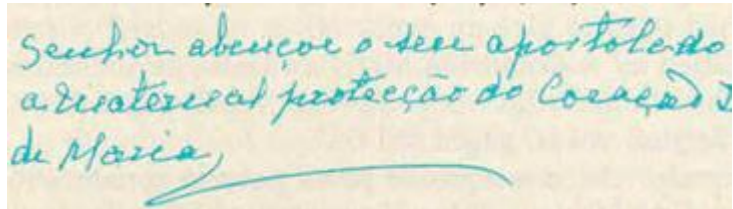 Senhor abençoe o seu apostolado
a maternal protecção do Coração I
de Maria,